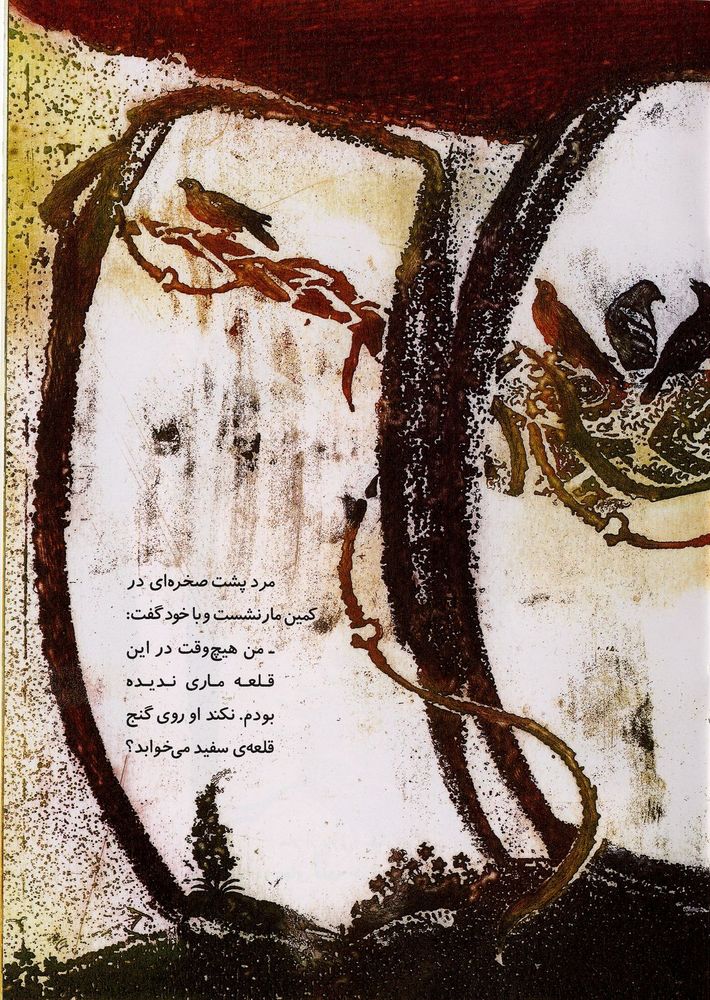 مرد پشت صخره‌ای در
کمین مار نشست و با خود گفت:
ـ من هیچ‌وقت در این
قلعه ماری ندیده
بودم. نکند او روی گنج
قلعه‌ی سفید می‌خوابد؟